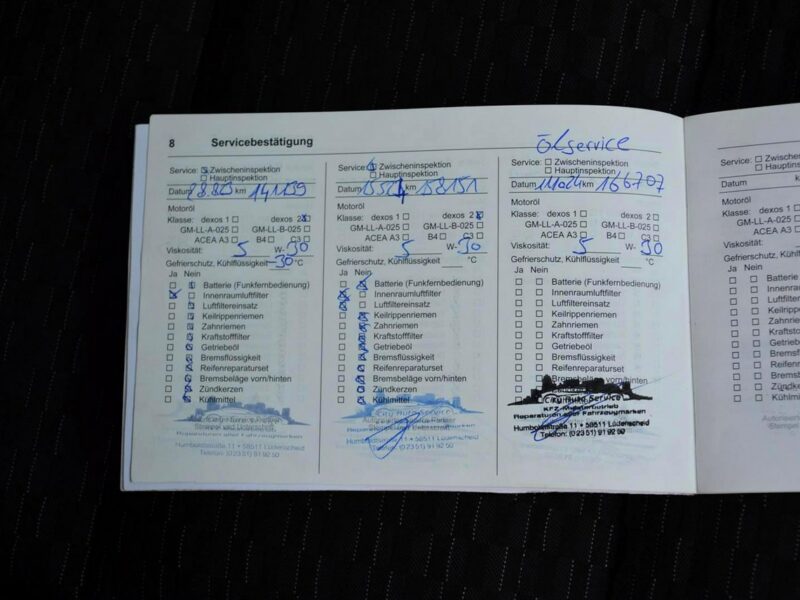 8 Servicebestätigung
Service: Zwischeninspektion
Hauptinspektion
Datum km 141139
Motoröl
Klasse: dexos 1 dexos 2
GM-LL-A-025 GM-LL-B-025
ACEA A3 B4 C3
Viskosität: 5 W- 30
Gefrierschutz, Kühlflüssigkeit -30 °C
Ja Nein
Batterie (Funkfernbedienung)
Innenraumluftfilter
Luftfiltereinsatz
Keilrippenriemen
Zahnriemen
Kraftstofffilter
Getriebeöl
Bremsflüssigkeit
Reifenreparaturset
Bremsbeläge vorn/hinten
Zündkerzen
Kühlmittel
Reparaturen aller Fahrzeugmarken
Humboldtstraße 11 • 58511 Lüdenscheid
Telefon: (0 23 51) 91 92 50
Service: Zwischeninspektion
Hauptinspektion
Datum km 158151
Motoröl
Klasse: dexos 1 dexos 2
GM-LL-A-025 GM-LL-B-025
ACEA A3 B4 C3
Viskosität: 5 W- 30
Gefrierschutz, Kühlflüssigkeit °C
Ja Nein
Batterie (Funkfernbedienung)
Innenraumluftfilter
Luftfiltereinsatz
Keilrippenriemen
Zahnriemen
Kraftstofffilter
Getriebeöl
Bremsflüssigkeit
Reifenreparaturset
Bremsbeläge vorn/hinten
Zündkerzen
Kühlmittel
City Auto Service
Reparaturen aller Fahrzeugmarken
Humboldtstraße 11 • 58511 Lüdenscheid
Telefon: (0 23 51) 91 92 50
Ölservice
Service: Zwischeninspektion
Hauptinspektion
Datum km 166707
Motoröl
Klasse: dexos 1 dexos 2
GM-LL-A-025 GM-LL-B-025
ACEA A3 B4 C3
Viskosität: 5 W- 30
Gefrierschutz, Kühlflüssigkeit °C
Ja Nein
Batterie (Funkfernbedienung)
Innenraumluftfilter
Luftfiltereinsatz
Keilrippenriemen
Zahnriemen
Kraftstofffilter
Getriebeöl
Bremsflüssigkeit
Reifenreparaturset
Bremsbeläge vorn/hinten
City Auto Service
KFZ-Meisterbetrieb
Reparaturen aller Fahrzeugmarken
Humboldtstraße 11 • 58511 Lüdenscheid
Telefon: (0 23 51) 91 92 50
Service: Zwischeninspektion
Hauptinspektion
Datum
Motoröl
Klasse: dexos 1
GM-LL-A-025
ACEA A3
Viskosität:
Gefrierschutz, Kühlflüssigkeit
Ja Nein
Batterie
Innenraumluftfilter
Luftfiltereinsatz
Keilrippenriemen
Zahnriemen
Kraftstofffilter
Getriebeöl
Bremsflüssigkeit
Zündkerzen
Kühlmittel